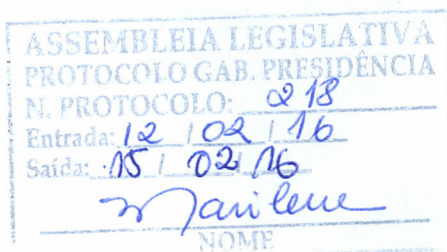 ASSEMBLEIA LEGISLATIVA
PROTOCOLO GAB. PRESIDÊNCIA
N. PROTOCOLO: 218
Entrada: 12 / 02 / 16
Saída: 15 / 02 / 16
Marilene
NOME